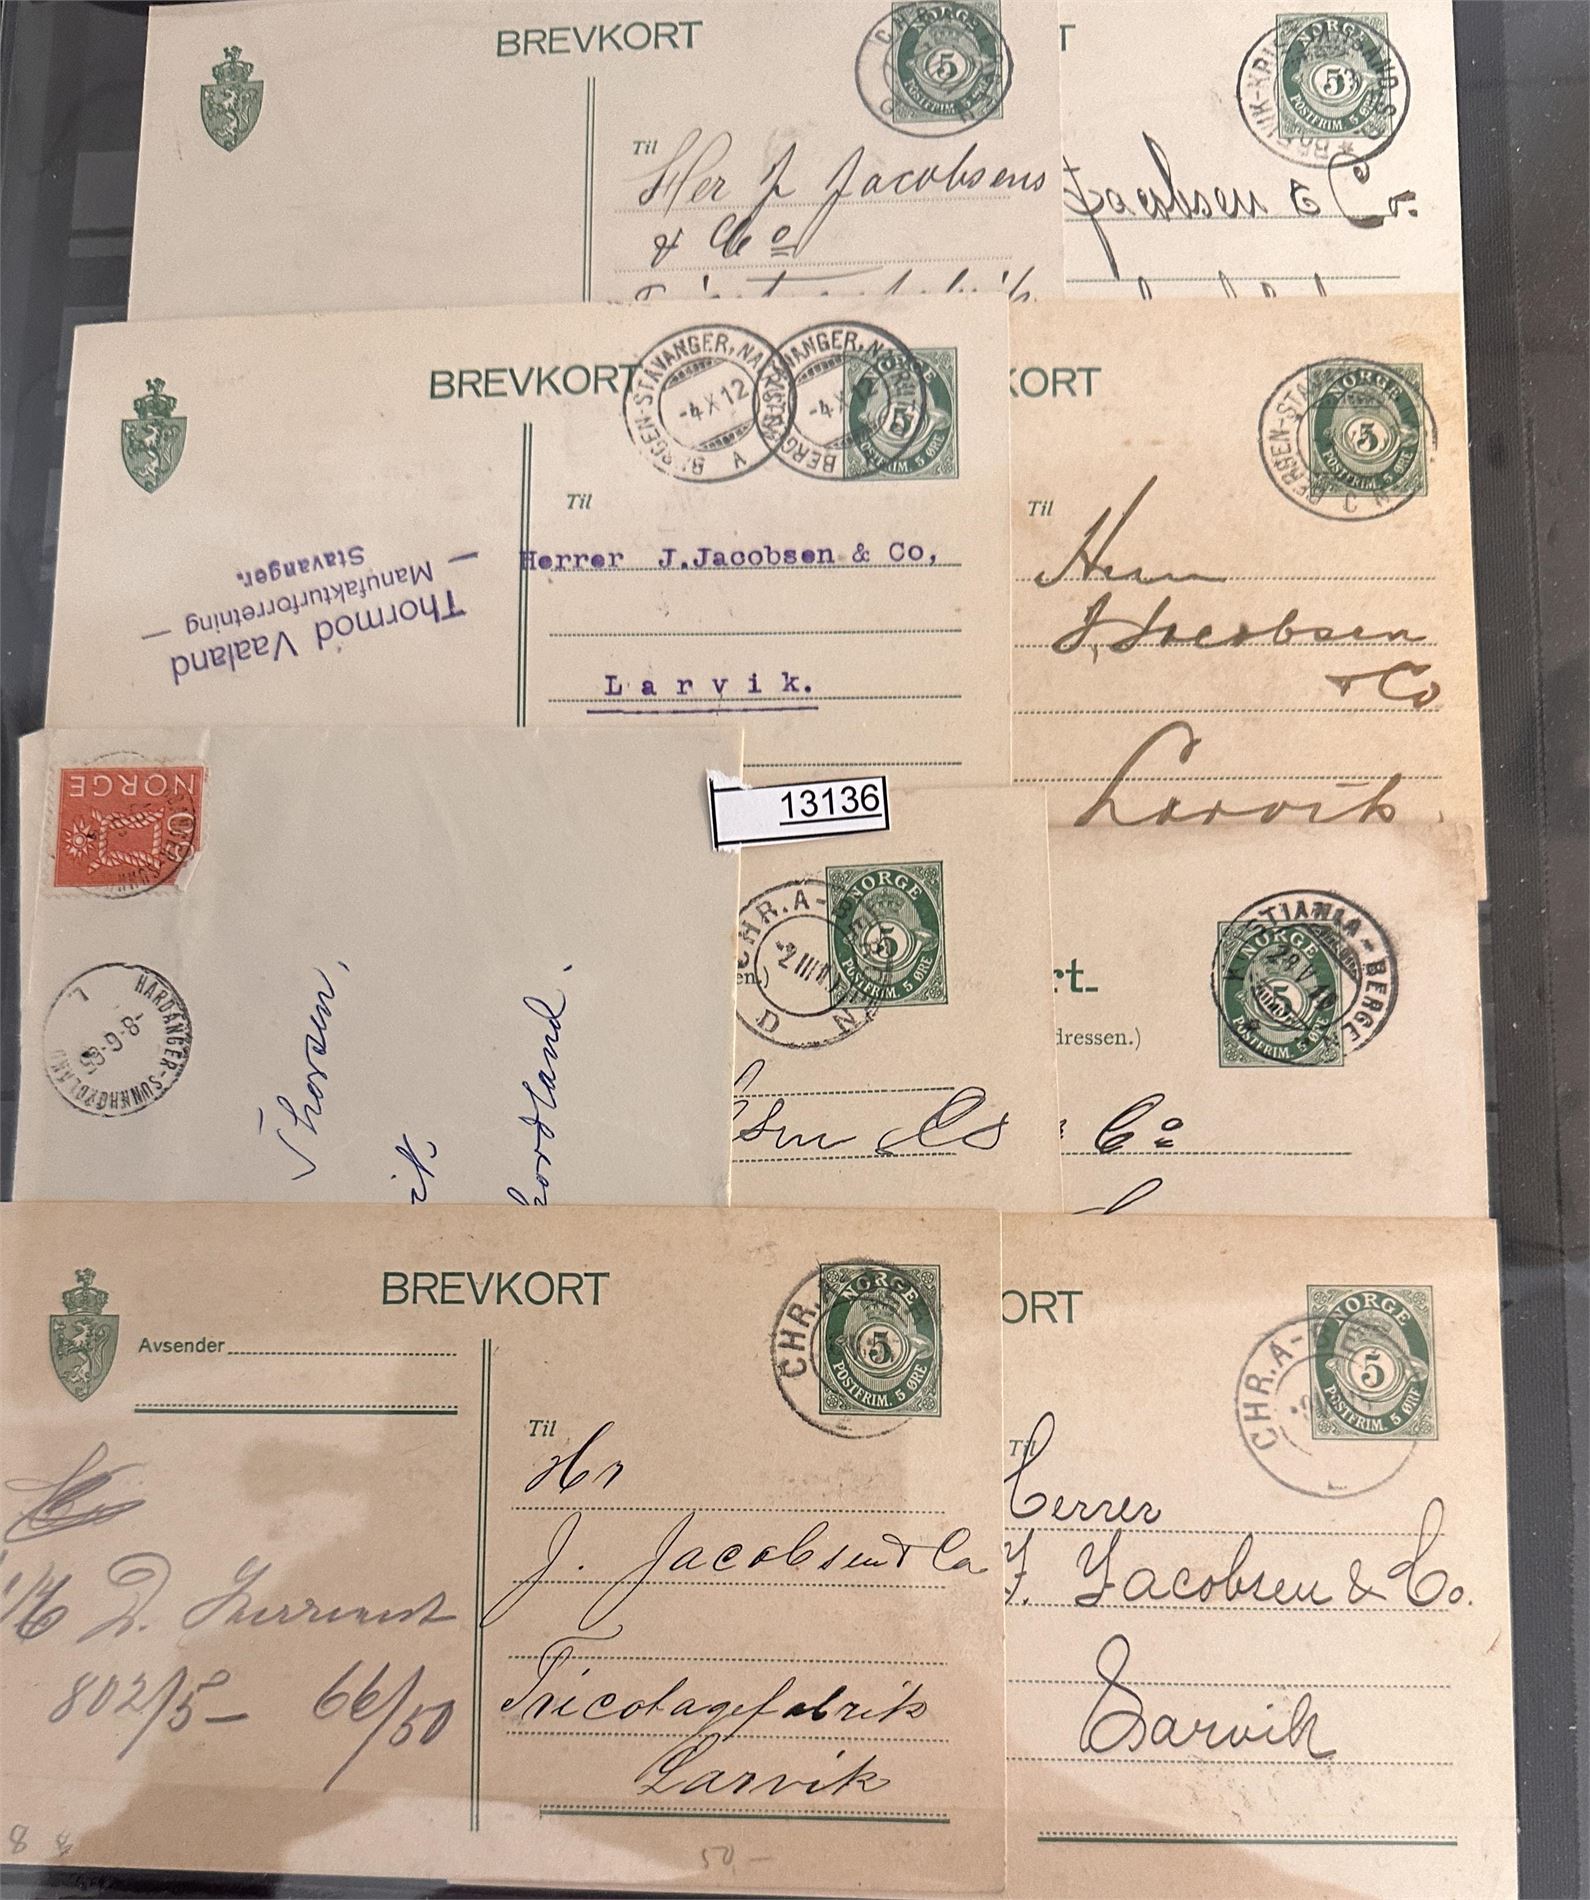 BREVKORT
NORGE
5
POSTFRIM. 5 ØRE
Til
Her J Jacobsens
& Co
T
NORGE
5
POSTFRIM. 5 ØRE
Jacobsen & Co.
BREVKORT
BERGEN-STAVANGER, NATRUTEN
-4 X 12
A
BERGEN-STAVANGER, NATRUTEN
-4 X 12
NORGE
5
POSTFRIM. 5 ØRE
Til
Herrer J.Jacobsen & Co,
Larvik.
Thormod Vaaland
— Manufakturforretning —
Stavanger.
KORT
BERGEN-STA
C N
NORGE
5
POSTFRIM. 5 ØRE
Til
Herrn
J. Jacobsen
& Co
Larvik.
NORGE
HARDANGER-SUNNHORDLAND
-8-9-63
L
Thorsen,
ik
hordland.
13136
CHR.A-BERG
2 III
D N
NORGE
5
POSTFRIM. 5 ØRE
en.)
sen & Co
rt.
KRISTIANIA-BERGE
28 V 10
NORGE
5
POSTFRIM. 5 ØRE
dressen.)
Co
BREVKORT
Avsender
CHR.A
NORGE
5
POSTFRIM. 5 ØRE
Til
Hr
J. Jacobsen & Co
Tricotagefabrik
Larvik
802/5- 66/50
8 8
50,-
ORT
CHR.A-
NORGE
5
POSTFRIM. 5 ØRE
Til
Herrer
J. Jacobsen & Co.
Larvik